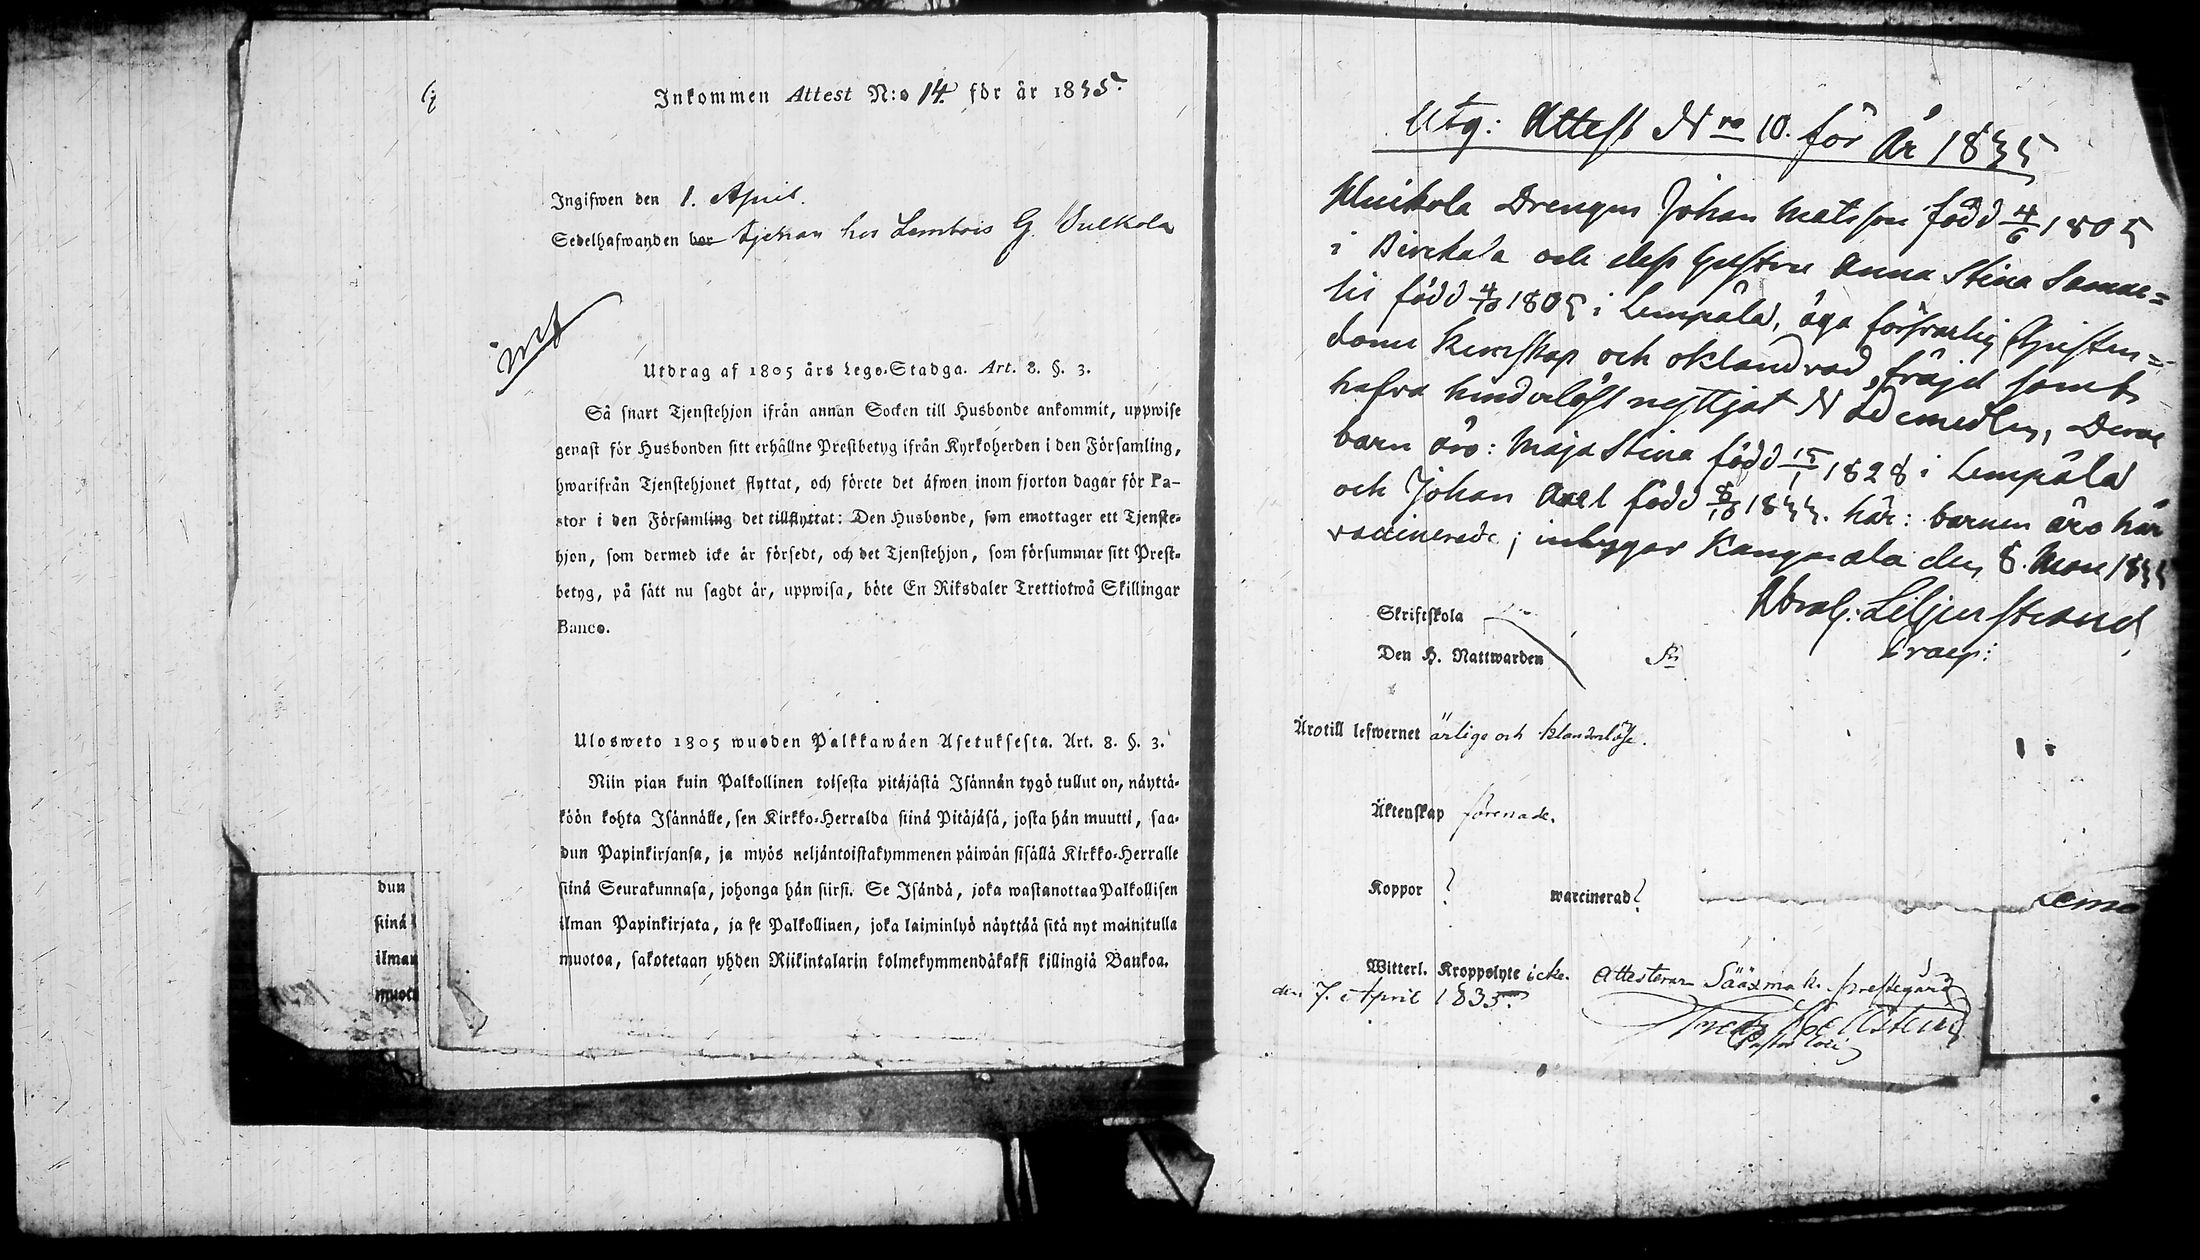 Inkommen Attest N:o 14. för år 1835.
Ingifwen den 1. April.
Sedelhafwanden bor tjenar hos Lembois G. Uulkola
inf
Utdrag af 1805 års Lego-Stadga. Art. 8. §. 3.
Så snart Tjenstehjon ifrån annan Socken till Husbonde ankommit, uppwise
genast för Husbonden sitt erhållne Prestbetyg ifrån Kyrkoherden i den Församling,
hwarifrån Tjenstehjonet flyttat, och förete det äfwen inom fjorton dagar för Pa-
stor i den Församling det tillflyttat: Den Husbonde, som emottager ett Tjenste-
hjon, som dermed icke är försedt, och det Tjenstehjon, som försummar sitt Prest-
betyg, på sätt nu sagdt är, uppwisa, böte En Riksdaler Trettiotwå Skillingar
Banco.
Ulosweto 1805 wuoden Palkkawäen Asetuksesta. Art. 8. §. 3.
Niin pian kuin Palkollinen toisesta pitäjästä Isännän tygö tullut on, näyttä-
köön kohta Isännälle, sen Kirkko-Herralda siinä Pitäjäsä, josta hän muutti, saa-
dun Papinkirjansa, ja myös neljäntoistakymmenen päiwän sisällä Kirkko-Herralle
siinä Seurakunnasa, johonga hän siirsi. Se Isändä, joka wastanottaa Palkollisen
ilman Papinkirjata, ja se Palkollinen, joka laiminlyö näyttää sitä nyt mainitulla
muotoa, sakotetaan yhden Riikintalarin kolmekymmendäkaksi killingiä Bankoa.
dun
siinä
ilman
muoto
Utg: Attest Nro 10. för År 1835
Drengen Johan Matsson född 4/6 1805
i Birckala och dess hustru Anna Stina Samue=
lis född 4/10 1805 i Lempälä, äga försvarlig Christen=
doms kunskap och oklandrad frägd samt
hafva hinderlöst nyttjat Nådemedlen, Deras
barn äro: Maja Stina född 15/1 1828 i Lempälä
och Johan Axel född 8/10 1833. här: barnen äro här
vaccinerade; intygar Kangasala den 8. Mars 1835
Abrah: Liljestrand
Skriftskola
Den H. Nattwarden
Äro till lefwernet ärlige och klanderlöse.
Äktenskap förenade.
Koppor ? waccinerad?
Witterl. Kroppslyte icke. Attesterar Sääxmäki prestegård
den 7. April 1835.
Pastor loci